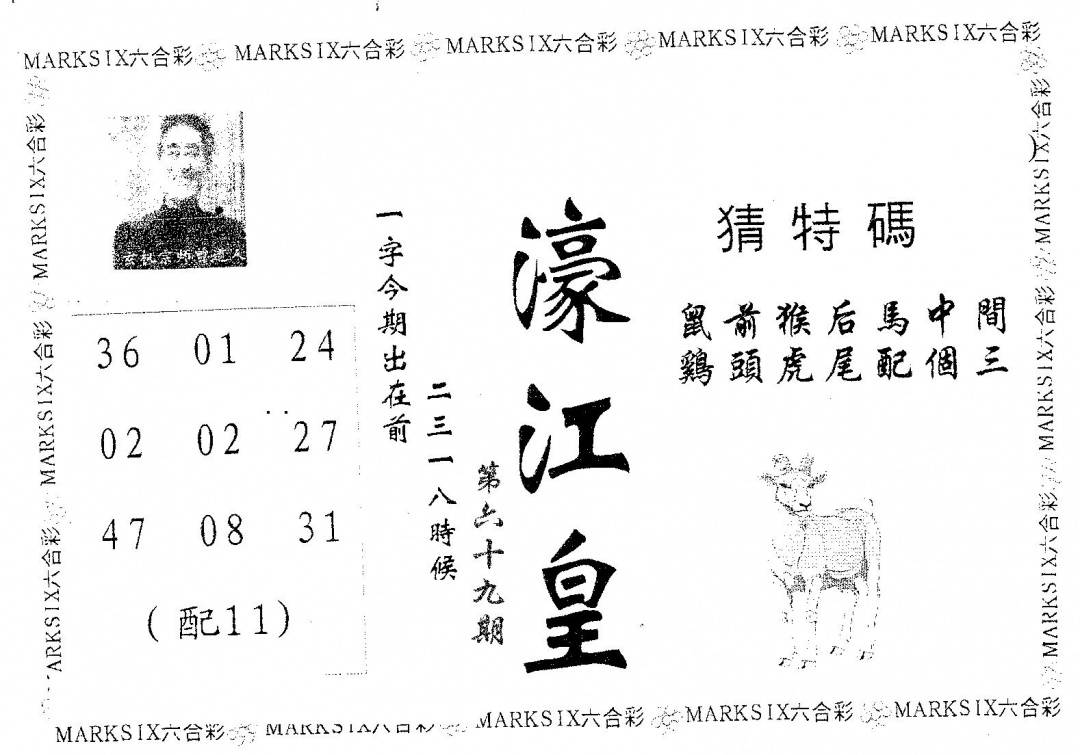 MARKSIX六合彩 MARKSIX六合彩 MARKSIX六合彩 MARKSIX六合彩 MARKSIX六合彩
MARKSIX六合彩
MARKSIX六合彩
ARKSIX六合彩
36 01 24
02 02 27
47 08 31
(配11)
一字今期出在前
二三一八時候
第六十九期
濠江皇
猜特碼
鼠前猴后馬中間
鷄頭虎尾配個三
MARKSIX六合彩
MARKSIX六合彩
MARKSIX六合彩
MARKSIX六合彩 MARKSIX六合彩 MARKSIX六合彩 MARKSIX六合彩 MARKSIX六合彩